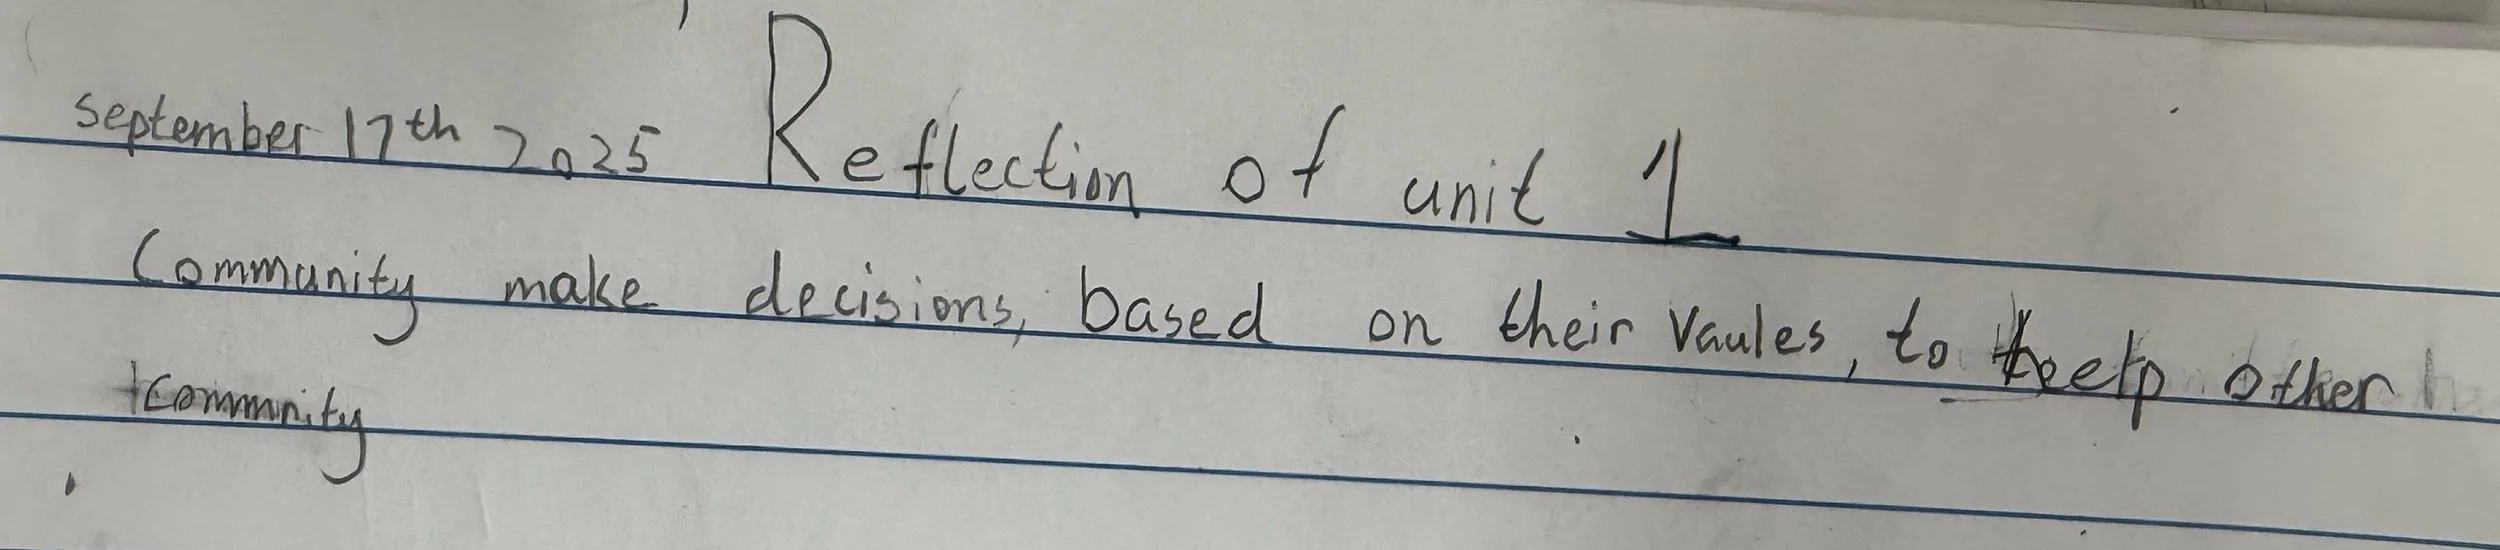 september 17th 2025 Reflection of unit 1
Community make decisions, based on their vaules, to help other
community